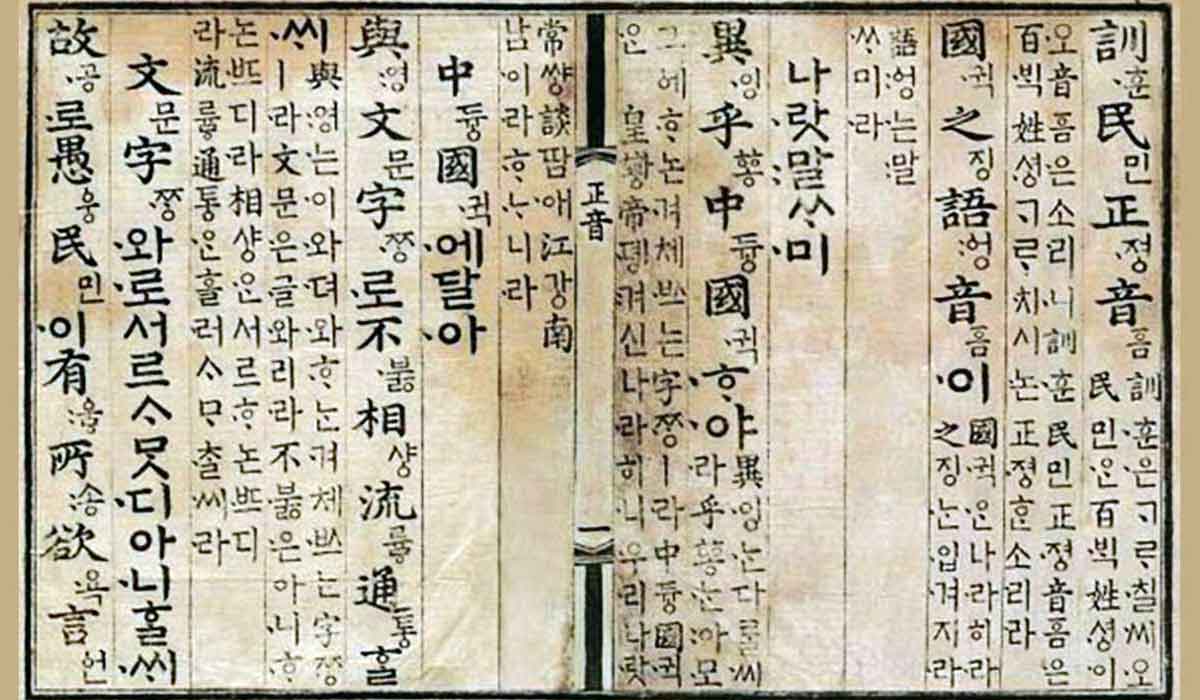 訓훈民민正졍音ᅙᅳᆷ訓훈은ᄀᆞᄅᆞ칠씨오
民민ᄋᆞᆫ百ᄇᆡᆨ姓셩이
오音ᅙᅳᆷ은소리니訓훈民민正졍音ᅙᅳᆷ은
百ᄇᆡᆨ姓셩ᄀᆞᄅᆞ치시논正졍ᄒᆞᆫ소리라
國귁之징語ᅌᅥᆼ音ᅙᅳᆷ이國귁ᄋᆞᆫ나라히라
之징ᄂᆞᆫ입겨지라
語ᅌᅥᆼ는말
ᄊᆞ미라
나랏말ᄊᆞ미
異잉乎ᅘᅩᆼ中듕國귁ᄒᆞ야異잉ᄂᆞᆫ다ᄅᆞᆯ씨
라乎ᅘᅩᆼᄂᆞᆫ아모
그에ᄒᆞ논겨체ᄡᅳ는字ᄍᆞᆼㅣ라中듕國귁
은皇ᅘᅪᆼ帝뎽겨신나라히니우리나랏
正音 一
常쌰ᇰ談땀애江강南
남이라ᄒᆞᄂᆞ니라
中듕國귁에달아
與영文문字ᄍᆞᆼ로不부ᇙ相샹流류ᇢ通통ᄒᆞᆯ
ᄊᆡ與영는이와뎌와ᄒᆞᄂᆞᆫ겨체ᄡᅳ는字ᄍᆞᆼ
ㅣ라文문은글와리라不부ᇙ은아니ᄒᆞ
논ᄠᅳ디라相샹ᄋᆞᆫ서르ᄒᆞ논ᄠᅳ디
라流류ᇢ通통ᄋᆞᆫ흘러ᄉᆞᄆᆞᄎᆞᆯ씨라
文문字ᄍᆞᆼ와로서르ᄉᆞᄆᆞᆺ디아니ᄒᆞᆯᄊᆡ
故공로愚ᅌᅮᆼ民민이有ᅌᅮᇢ所송欲욕言언